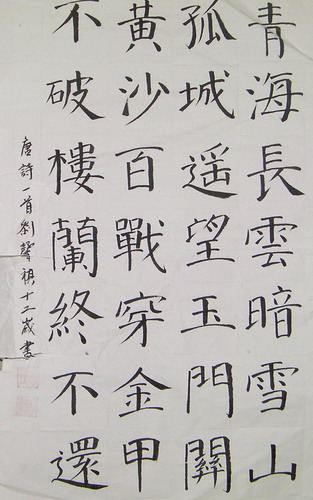 青海長雲暗雪山
孤城遥望玉門關
黃沙百戰穿金甲
不破樓蘭終不還
唐詩一首劉馨祺十二歲書